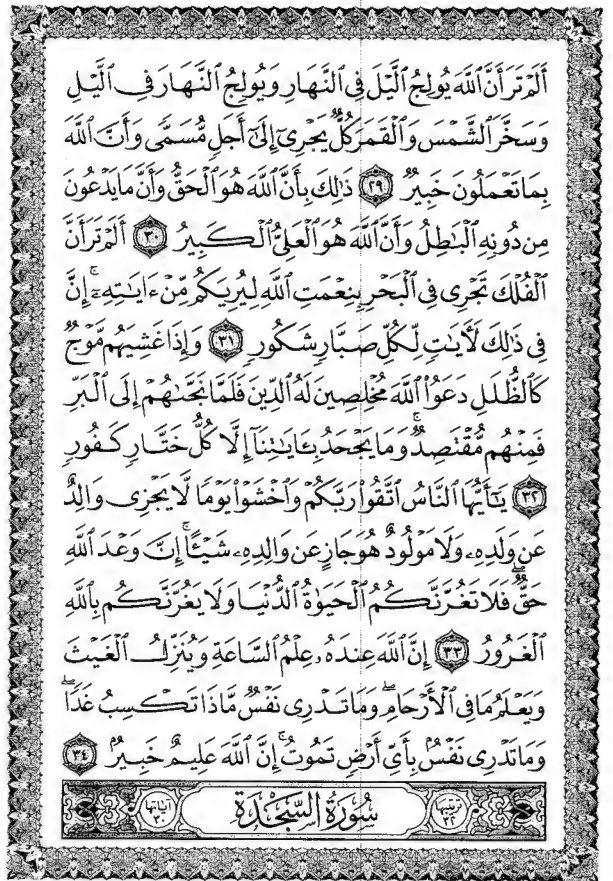 أَلَمْ تَرَ أَنَّ ٱللَّهَ يُولِجُ ٱلَّيْلَ فِى ٱلنَّهَارِ وَيُولِجُ ٱلنَّهَارَ فِى ٱلَّيْلِ
وَسَخَّرَ ٱلشَّمْسَ وَٱلْقَمَرَ كُلٌّ يَجْرِىٓ إِلَىٰٓ أَجَلٍ مُّسَمًّى وَأَنَّ ٱللَّهَ
بِمَا تَعْمَلُونَ خَبِيرٌ ﴿٢٩﴾ ذَٰلِكَ بِأَنَّ ٱللَّهَ هُوَ ٱلْحَقُّ وَأَنَّ مَا يَدْعُونَ
مِن دُونِهِ ٱلْبَٰطِلُ وَأَنَّ ٱللَّهَ هُوَ ٱلْعَلِىُّ ٱلْكَبِيرُ ﴿٣٠﴾ أَلَمْ تَرَ أَنَّ
ٱلْفُلْكَ تَجْرِى فِى ٱلْبَحْرِ بِنِعْمَتِ ٱللَّهِ لِيُرِيَكُم مِّنْ ءَايَٰتِهِۦٓ ۚ إِنَّ
فِى ذَٰلِكَ لَءَايَٰتٍ لِّكُلِّ صَبَّارٍ شَكُورٍ ﴿٣١﴾ وَإِذَا غَشِيَهُم مَّوْجٌ
كَٱلظُّلَلِ دَعَوُا۟ ٱللَّهَ مُخْلِصِينَ لَهُ ٱلدِّينَ فَلَمَّا نَجَّىٰهُمْ إِلَى ٱلْبَرِّ
فَمِنْهُم مُّقْتَصِدٌ ۚ وَمَا يَجْحَدُ بِـَٔايَٰتِنَآ إِلَّا كُلُّ خَتَّارٍ كَفُورٍ
﴿٣٢﴾ يَٰٓأَيُّهَا ٱلنَّاسُ ٱتَّقُوا۟ رَبَّكُمْ وَٱخْشَوْا۟ يَوْمًا لَّا يَجْزِى وَالِدٌ
عَن وَلَدِهِۦ وَلَا مَوْلُودٌ هُوَ جَازٍ عَن وَالِدِهِۦ شَيْـًٔا ۚ إِنَّ وَعْدَ ٱللَّهِ
حَقٌّ ۖ فَلَا تَغُرَّنَّكُمُ ٱلْحَيَوٰةُ ٱلدُّنْيَا وَلَا يَغُرَّنَّكُم بِٱللَّهِ
ٱلْغَرُورُ ﴿٣٣﴾ إِنَّ ٱللَّهَ عِندَهُۥ عِلْمُ ٱلسَّاعَةِ وَيُنَزِّلُ ٱلْغَيْثَ
وَيَعْلَمُ مَا فِى ٱلْأَرْحَامِ ۖ وَمَا تَدْرِى نَفْسٌ مَّاذَا تَكْسِبُ غَدًا ۖ
وَمَا تَدْرِى نَفْسٌۢ بِأَىِّ أَرْضٍ تَمُوتُ ۚ إِنَّ ٱللَّهَ عَلِيمٌ خَبِيرٌۢ ﴿٣٤﴾
ترتيبها ٣٢ سُورَةُ السَّجْدَةِ آياتها ٣٠